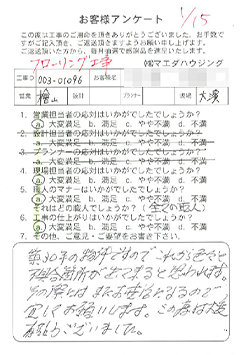 お客様アンケート 1/15
この度は工事のご用命を頂きありがとうございました。お手数で
すがご記入頂き、ご返送頂きますようお願い申し上げます。
ご返送頂いた方から、毎月抽選で感謝品を進呈いたします。
フローリング工事 ㈱マエダハウジング
003-01096 お客様名
営業 檜山 設計 プランナー 現場 大濱
1. 営業担当者の応対はいかがでしたでしょうか?
ⓐ 大変満足 b. 満足 c. やや不満 d. 不満
2. 設計担当者の応対はいかがでしたでしょうか?
a. 大変満足 b. 満足 c. やや不満 d. 不満
3. プランナーの応対はいかがでしたでしょうか?
a. 大変満足 b. 満足 c. やや不満 d. 不満
4. 現場担当者の応対はいかがでしたでしょうか?
ⓐ 大変満足 b. 満足 c. やや不満 d. 不満
5. 職人のマナーはいかがでしたでしょうか?
ⓐ 大変満足 b. 満足 c. やや不満 d. 不満
それはどの職人でしょうか?(全ての職人)
6. 工事の仕上がりはいかがでしたでしょうか?
ⓐ 大変満足 b. 満足 c. やや不満 d. 不満
7. その他、ご意見・ご要望をお書き下さい。
築30年の物件ですので これから色々と
不具合箇所が出てくると思われます。
その際には またお世話になるので
宜しくお願いします。この度は大変
有難うございました。